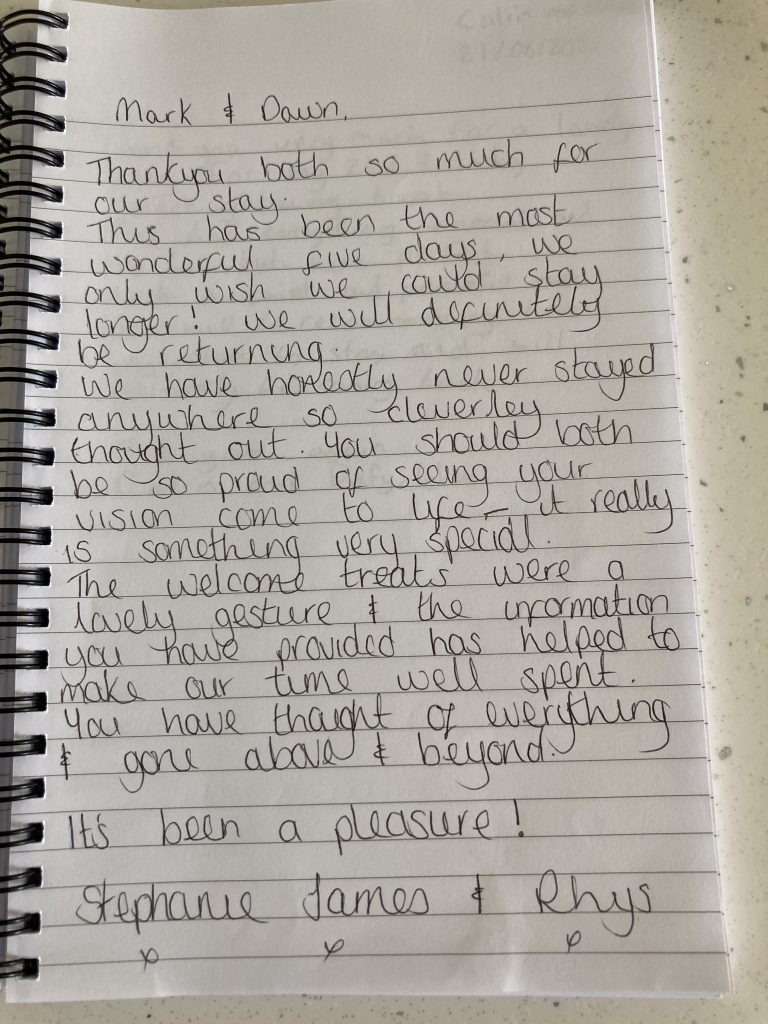 Mark & Dawn,
Thankyou both so much for
our stay.
This has been the most
wonderful five days, we
only wish we could stay
longer! We will definitely
be returning.
We have honestly never stayed
anywhere so cleverley
thought out. You should both
be so proud of seeing your
vision come to life - it really
is something very special.
The welcome treats were a
lovely gesture & the information
you have provided has helped to
make our time well spent.
You have thought of everything
& gone above & beyond.
It's been a pleasure!
Stephanie James & Rhys
x x x